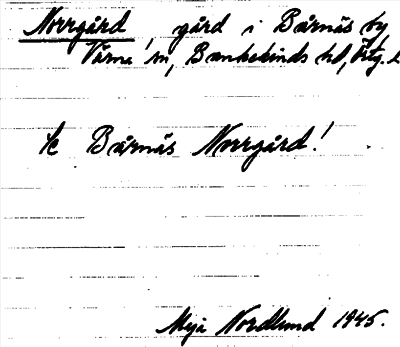 Norrgård, gård i Bärnäs by
Värna sn, Bankekinds hd, Östg. l
Se Bärnäs Norrgård!
Meja Nordlund 1945.